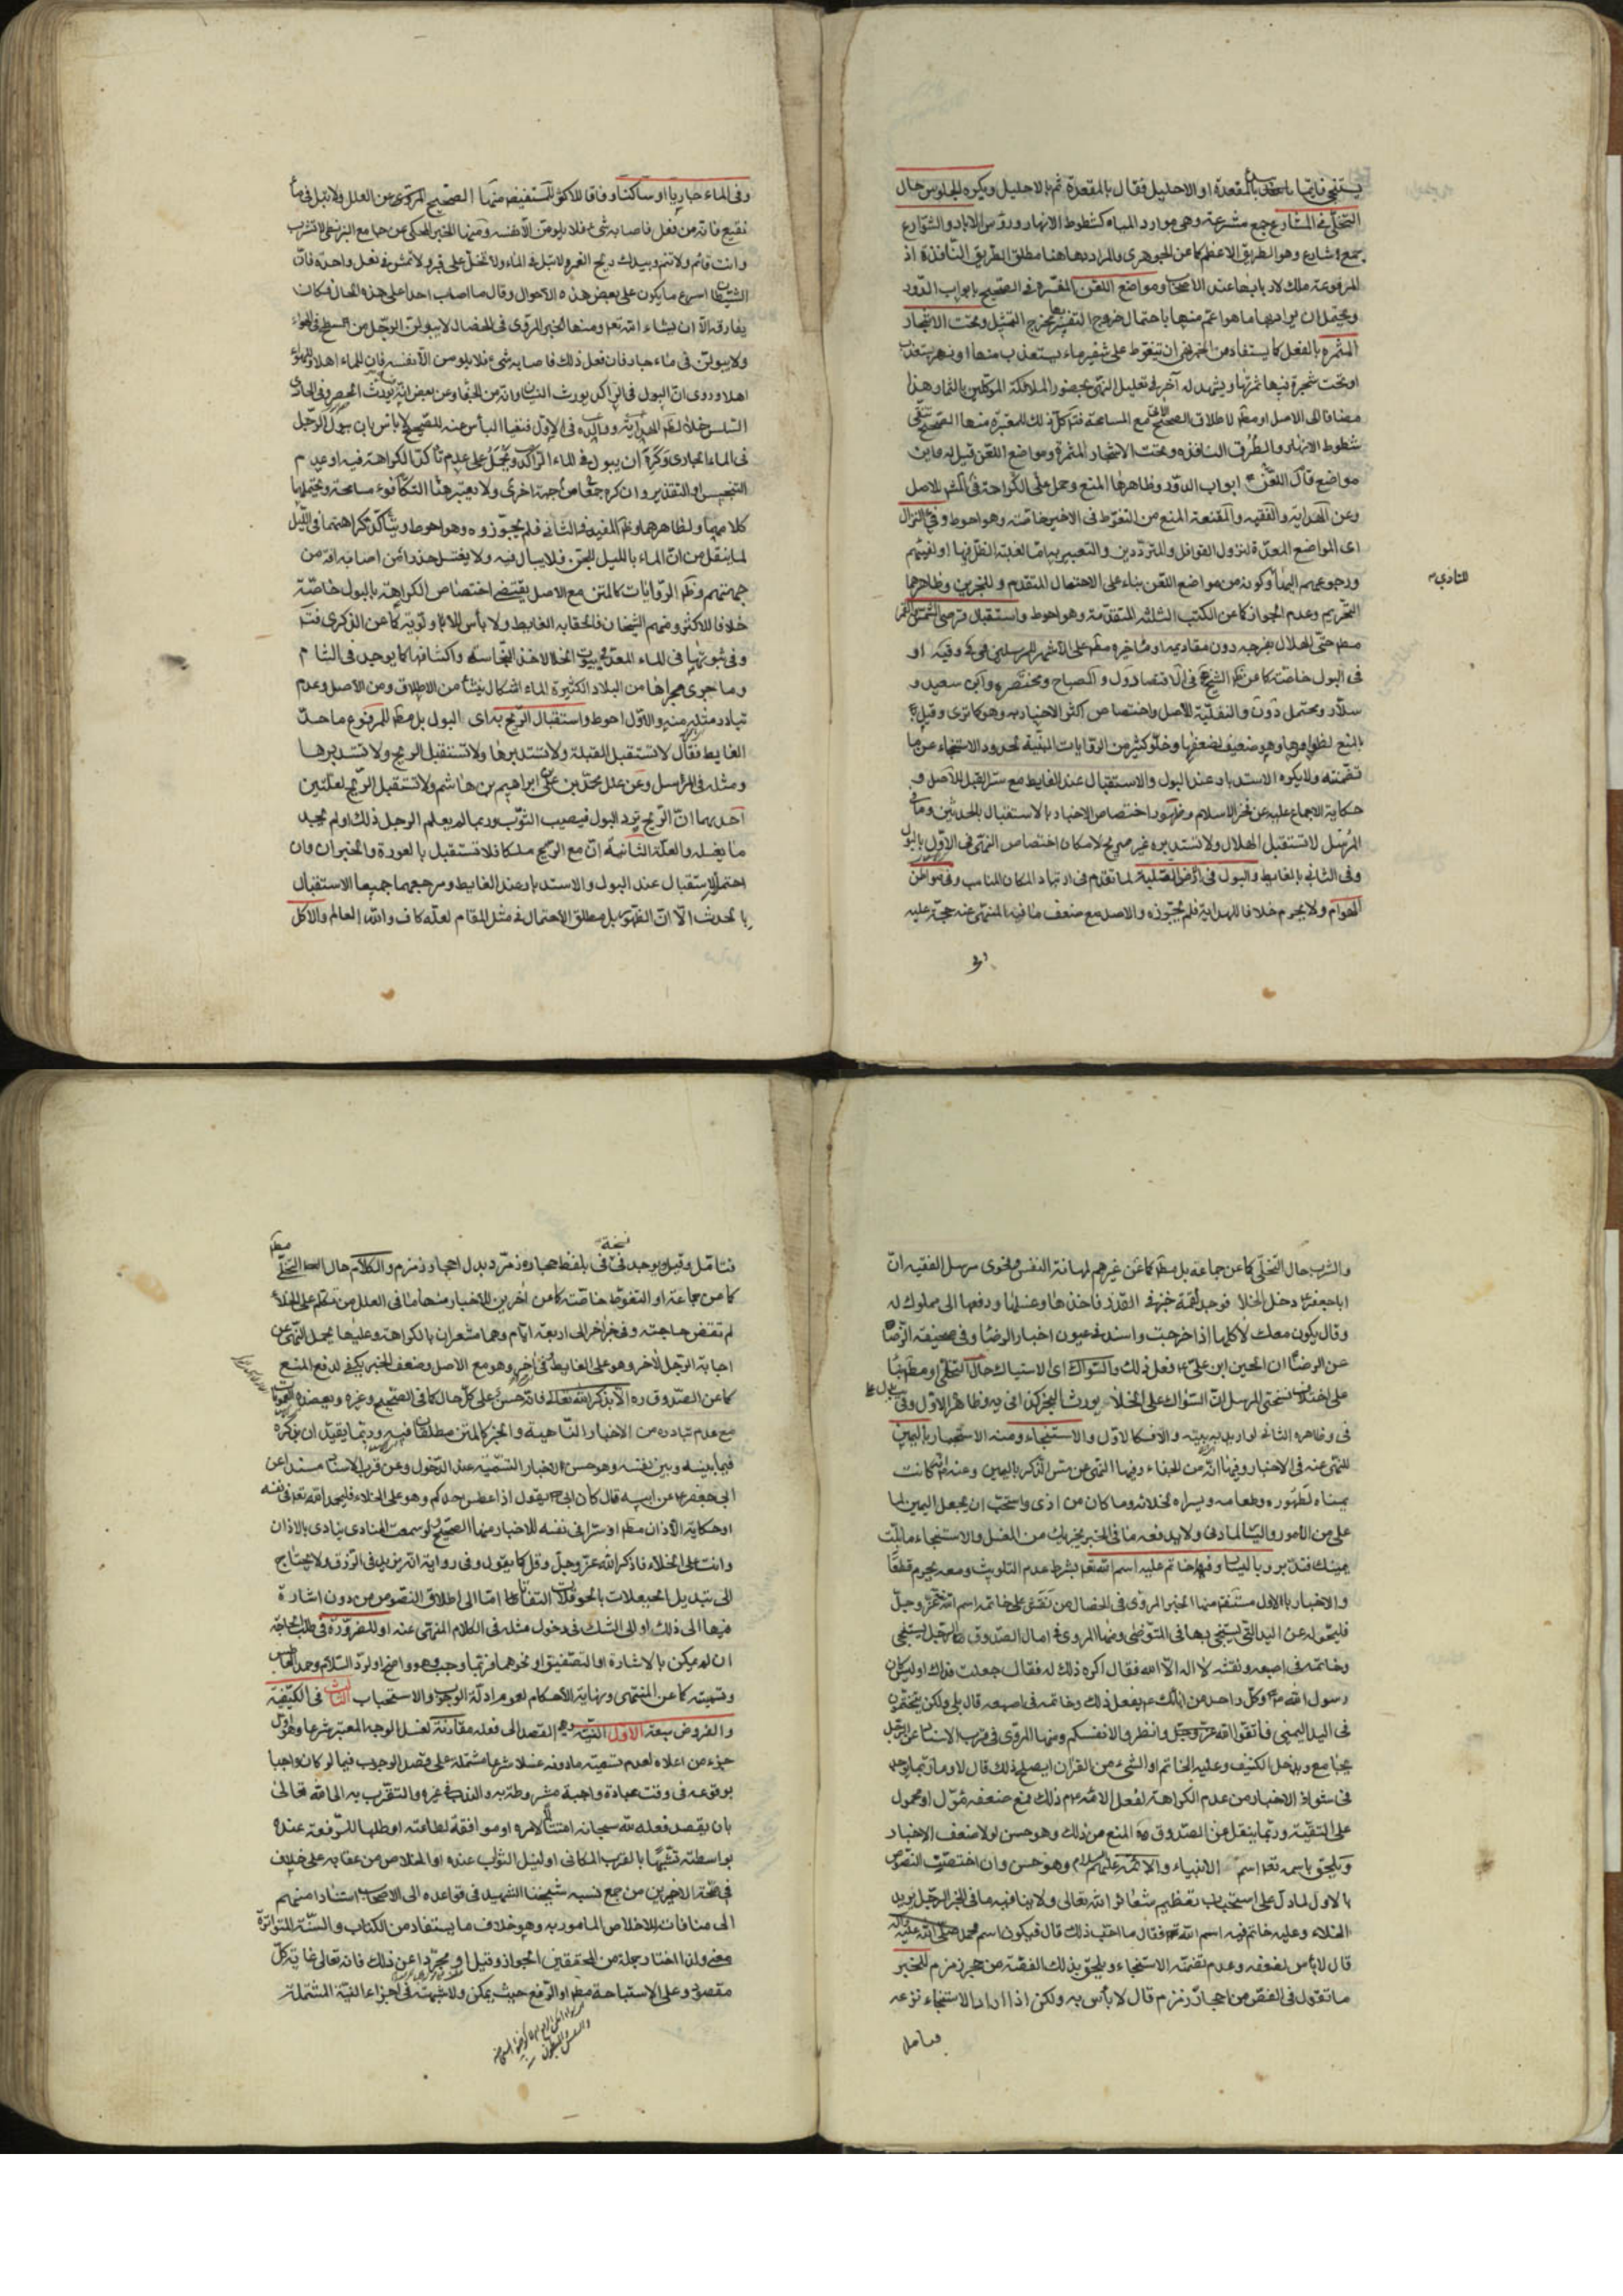 يستنجي فايما يبدء بالمقعدة او الاحليل فقال بالمقعدة ثم بالاحليل ويكره الجلوس حال
التخلي في المشارع جمع مشرعة وهي موارد المياه كشطوط الانهار ورؤس الابار والشوارع
جمع شارع وهو الطريق الاعظم كما عن الجوهري والمراد بها هنا مطلق الطريق النافذة اذ
المرفوعة ملك لاربابها عند الاصحاب ومواضع اللعن المفسرة في الصحيح بابواب الدور
ويحتمل ان يراد بها ما هو اعم منها باحتمال خروج التفسير مخرج التمثيل وتحت الاشجار
المثمرة بالفعل كما يستفاد من الخبر ان يتغوط على شفير ماء يستعذب منها او نهر يستعذب
او تحت شجرة فيها ثمرتها ويشهد له آخر في تعليل النهي بحضور الملائكة الموكلين بالثمار وهذا
مضافا الى الاصل او مطم لاطلاق الصحيح مع المسامحة كل ذلك للمعتبرة منها الصحيح تتقى
شطوط الانهار والطرق النافذة وتحت الاشجار المثمرة ومواضع اللعن قيل له واين
مواضع اللعن قال ابواب الدور وظاهرها المنع وحمل على الكراهة في الاشهر للاصل
وعن الهداية والفقيه والمقنعة المنع من التغوط في الاخير خاصة وهو احوط وفيء النزال
اى المواضع المعدة لنزول القوافل والمترددين والتعبير به اما لغلبة الظل فيها او لفيئهم
ورجوعهم اليها او كونه من مواضع اللعن بناء على الاحتمال المتقدم وللخبرين وظاهرهما
للتاذي
التحريم وعدم الجواز كما عن الكتب الثلثة المتقدمة وهو احوط واستقبال قرصى الشمس والقمر
مطم حتى الهلال بفرجه دون مقاديمه او متاخره مطم على الاشهر للمرسلين او
في البول خاصة كما عن الشيخ في الاقتصاد والمصباح ومختصره وابن سعيد و
سلار ويحتمل دون والنفلية للاصل واختصاص اكثر الاخبار به وهو كما ترى وقيل
بالمنع لظواهرها وهو ضعيف لضعفها وخلو كثير من الروايات المبينة لحدود الاستنجاء عن ما
تضمنته ولا يكره الاستدبار عند البول والاستقبال عند الغايط مع ستر القبل للاصل و
حكاية الاجماع عليه عن فخر الاسلام وظهور اختصاص الاخبار بالاستقبال بالحدثين وما في
المرسل لا تستقبل الهلال ولا تستدبره غير صريح لامكان اختصاص النهي في الاول بالبول
وفي الثاني بالغايط والبول في ارض الصلبة لما تقدم في ارتياد المكان المناسب وفي مواطن
الهوام ولا يحرم خلافا للهداية فلم يجوزه والاصل مع ضعف ما فيه المنهي عنه حجة عليه
وفي
وفي الماء جاريا او ساكنا وفاقا للاكثر للمستفيض منها الصحيح المروي عن العلل ولا تبل في ماء
نقيع فانه من فعل فاصابه شيء فلا يلومن الا نفسه ومنها الخبر المحكي عن جامع البزنطي لا تشرب
وانت قائم ولا تنم وبيدك ريح الغمر ولا تبل في الماء ولا تخل على قبر ولا تمش في نعل واحدة فان
الشيطان اسرع ما يكون على بعض هذه الاحوال وقال ما اصاب احدا على هذه الحال فكاد
يفارقه الا ان يشاء الله تعالى ومنها الخبر المروي في الخصال لا يبولن الرجل من سطح في الهواء
ولا يبولن في ماء جار فان فعل ذلك فاصابه شيء فلا يلومن الا نفسه فان للماء اهلا وللهواء
اهلا وروى ان البول في الراكد يورث النسيان وانه من الجفا وعن بعض انه يورث الحصر وفي الجاري
السلس خلافا لظم الهداية ووالده في الاول فنفيا الباس عنه للصحيح لا باس بان يبول الرجل
في الماء الجاري وكره ان يبول في الماء الراكد ويحمل على عدم تأكد الكراهة فيه او عدم
التنجيس او التقذير وان كره جمعا من جهة اخرى ولا يعتبر هنا التكافوء مسامحة ويحتملها
كلامهما ولظاهرهما وظم المفيد في الثاني فلم يجوزوه وهو احوط ويتأكد كراهتهما في الليل
لما ينقل من ان الماء بالليل للجن فلا يبال فيه ولا يغتسل حذرا من اصابة افة من
جهتهم وظم الروايات كالمتن مع الاصل يقتضي اختصاص الكراهة بالبول خاصة
خلافا للاكثر ومنهم الشيخان فالحقا به الغايط ولا بأس للاولوية كما عن الذكرى
وفي ثبوتها في الماء المعد في بيوت الخلاء لاخذ النجاسة واكتنافها كما يوجد في الشام
وما جرى مجراها من البلاد الكثيرة الماء اشكال ينشأ من الاطلاق ومن الاصل وعدم
تبادر مثله منه والاول احوط واستقبال الريح به اى البول بل مطم للمرفوع ما حد
الغايط فقال لا تستقبل القبلة ولا تستدبرها ولا تستقبل الريح ولا تستدبرها
ومثله في المراسل وعن علل محمد بن علي بن ابراهيم بن هاشم ولا تستقبل الريح لعلتين
احدهما ان الريح ترد البول فيصيب الثوب وربما لم يعلم الرجل ذلك او لم يجد
ما يغسله والعلة الثانية ان مع الريح ملكا فلا تستقبل بالعورة والخبران وان
احتملا الاستقبال عند البول والاستدبار عند الغايط ومرجعهما جميعا الاستقبال
بالحدث الا ان الظهور بل مطلق الاحتمال في مثل المقام لعله كاف والله العالم والاكل
والشرب حال التخلي كما عن جماعة بل مطم كما عن غيرهم لمهانة النفس وفحوى مرسل الفقيه ان
ابا جعفر ع دخل الخلا فوجد لقمة خبز في القذر فاخذها وغسلها ودفعها الى مملوك له
وقال يكون معك لآكلها اذا خرجت واسند في عيون اخبار الرضا وفي صحيفة الرضا
عن الرضا ان الحسين ابن علي ع فعل ذلك والسواك اى الاستياك حال التخلي او مطم
على اختلاف نسختي المرسل ان السواك على الخلاء يورث البخر كذا في يه وظاهر الاول وفي
في وظاهره الثاني لو اريد به بيته والا فكالاول والاستنجاء ومنه الاستجمار باليمين
للنهي عنه في الاخبار وفيها انه من الجفاء وفيها النهي عن مس الذكر باليمين وعنه انه كانت
يمناه لطهوره وطعامه ويسراه لخلائه وما كان من اذى واستحب ان يجعل اليمين لما
على من الامور واليسار لما دنى ولا يدفعه ما في الخبر يجزيك من الغسل والاستنجاء ما بلت
يمينك فتدبر وباليسار وفيها خاتم عليه اسم الله تعالى بشرط عدم التلويث ومعه يحرم قطعا
والاخبار بالاول مستفيضة منها الخبر المروي في الخصال من نقش على خاتمه اسم الله عز وجل
فليحوله عن اليد التي يستنجي بها في المتوضى ومنها المروي في امالي الصدوق الرجل يستنجي
وخاتمه في اصبعه ونقشه لا اله الا الله فقال اكره ذلك له فقال جعلت فداك اوليس كان
رسول الله وكل واحد من ابائك ع يفعل ذلك وخاتمه في اصبعه قال بلى ولكن يتختمون
في اليد اليمنى فاتقوا الله عز وجل وانظروا لانفسكم ومنها المروي في قرب الاسناد عن الرجل
يجامع ويدخل الكنيف وعليه الخاتم او الشيء من القرآن ايصلح ذلك قال لا وما ربما يوجد
في شواذ الاخبار من عدم الكراهة لفعل الائمة ع ذلك فمع ضعفه مؤول او محمول
على التقية وربما ينقل عن الصدوق ره المنع من ذلك وهو حسن لولا ضعف الاخبار
ويلحق باسمه تعالى اسم الانبياء والائمة عليهم السلام وهو حسن وان اختصت النصوص
بالاول لما دل على استحباب تعظيم شعائر الله تعالى ولا ينافيه ما في الخبر الرجل يريد
الخلاء وعليه خاتم فيه اسم الله تعالى فقال ما احب ذلك قال فيكون اسم محمد صلى الله عليه وآله
قال لا بأس لضعفه وعدم تضمنه الاستنجاء ويلحق بذلك الفصة من حجر زمزم للخبر
ما تقول في الفص من احجار زمزم قال لا بأس به ولكن اذا اراد الاستنجاء نزعه
فتامل
نسخة
فتامل وقيل يوجد في نسخة في بلفظ حجارة زمرد بدل احجار زمزم والكلام حال التخلي مطم
كما عن جماعة او التغوط خاصة كما عن اخرين للاخبار منها ما في العلل من تكلم على الخلاء
لم تقض حاجته وفي خبر اخر الى اربعة ايام وهما مشعران بالكراهة وعليها يحمل النهي عن
اجابة الرجل لاخر وهو على الغايط في اخر وهو مع الاصل وضعف الخبر يكفي لدفع المنع
كما عن الصدوق ره الا بذكر الله تعالى فانه حسن على كل حال كما في الصحيح وغيره ويعضده العمومات
مع عدم تبادره من الاخبار الناهية والخبر كالمتن مطلقان فيه وربما يقيد ان يذكره
فيما بينه وبين نفسه وهو حسن الاخبار التسمية عند الدخول وعن قرب الاسناد مسندا عن
ابي جعفر ع عن ابيه قال كان ابي يقول اذا عطس احدكم وهو على الخلاء فليحمد الله تعالى في نفسه
او حكاية الاذان مطم او سرا في نفسه للاخبار منها الصحيح لو سمعت المنادي ينادي بالاذان
وانت على الخلاء فاذكر الله عز وجل وقل كما يقول وفي رواية انه يزيد في الرزق ولا يحتاج
الى تبديل الحيعلات بالحوقلات التفاتا اما الى اطلاق النصوص من دون اشارة
فيها الى ذلك او الى الشك في دخول مثله في الكلام المنهي عنه او للضرورة في طلب الحاجة
ان لم يمكن بالاشارة او التصفيق او نحوهما فربما وجب وهو واضح او لرد السلام وحمد العاطس
وتسميته كما عن المنتهى ونهاية الاحكام لعموم ادلة الوجوب والاستحباب الثالث في الكيفية
والفروض سبعة الاول النية وهي القصد الى فعله مقارنة لغسل الوجه المعتبر شرعا وهو اول
جزء من اعلاه لعدم تسميته ما دونه غسلا شرعا مشتملة على قصد الوجوب فيما لو كان واجبا
بوقوعه في وقت عبادة واجبة مشروطة به والندب في غيره والتقرب به الى الله تعالى
بان يقصد فعله لله سبحانه امتثالا لامره او موافقة لطاعته او طلبا للرفعة عنده
بواسطته تشبيها بالقرب المكاني او لنيل الثواب عنده او الخلاص من عقابه على خلاف
في صحة الاخيرين من جمع نسبه شيخنا الشهيد في قواعده الى الاصحاب استنادا منهم
الى منافاته للاخلاص المامور به وهو خلاف ما يستفاد من الكتاب والسنة المتواترة
معنى ولذا اختار جملة من المحققين الجواز وقيل او مجردا عن ذلك فانه تعالى غاية كل
مقصود وعلى الاستباحة مطم او الرفع حيث يمكن ولا شبهة في اجزاء النية المشتملة